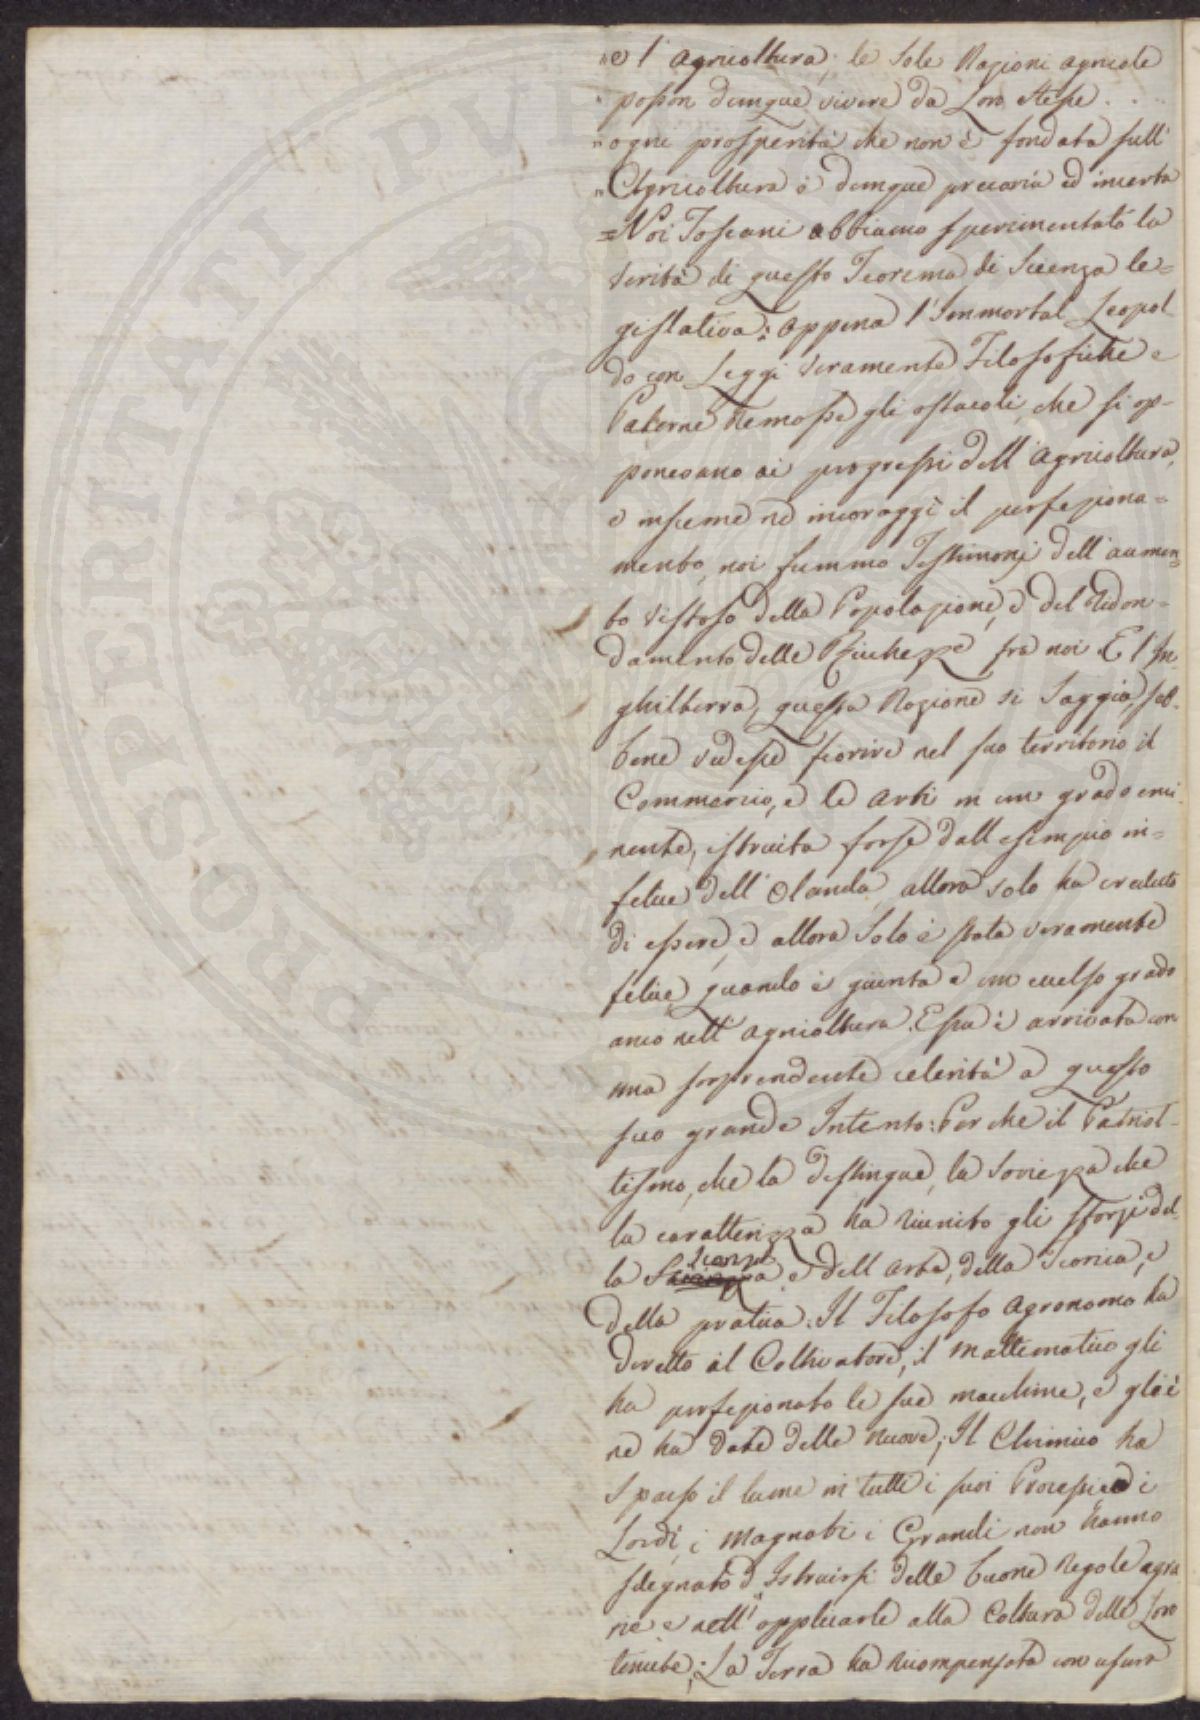 "e l'Agricoltura; le sole Nazioni agricole
" posson dunque vivere da Loro stesse . . .
" ogni prosperità che non è fondata sull'
" Agricoltura è dunque precaria ed incerta
= Noi Toscani abbiamo sperimentato la
verità di questo Teorema di Scienza le=
gislativa: appena l'Immortal Leopol
do con Leggi veramente Filosofiche e
Paterne remosse gli ostacoli, che si op=
ponevano ai progressi dell'Agricoltura,
e insieme ne incoraggì il perfeziona=
mento, noi fummo Testimonj dell'aumen=
to vistoso della Popolazione, e del Ridon=
damento delle Ricchezze fra noi. E l'In
ghilterra, questa Nazione si saggia, seb=
bene vedesse fiorire nel suo territorio il
Commercio, e le Arti in un grado emi
nente, istruita forse dall esempio in=
felice dell'Olanda, allora solo ha creduto
di essere, e allora solo è stata veramente
felice, quando è giunta a un eccelso grado
anco nell'Agricoltura. Essa è arrivata con
una sorprendente celerità a questo
suo grande Intento: Perche il Patriot=
tismo, che la distingue, la saviezza che
la caratterizza ha riunito gli sforzi del=
la Scienza, e dell'Arte, della Teorica, e
della pratica. Il Filosofo Agronomo ha
diretto il Coltivatore, il Mattematico gli
ha perfezionato le sue macchine, e gliè
ne ha date delle nuove; Il Chimico ha
sparso il lume in tutti i suoi Processi e i
Lordi, i Magnati i Grandi non hanno
sdegnato d'Istruirsi delle buone regole agra
rie e nell'applicarle alla Coltura delle Loro
tenute; La Terra ha ricompensata con usura